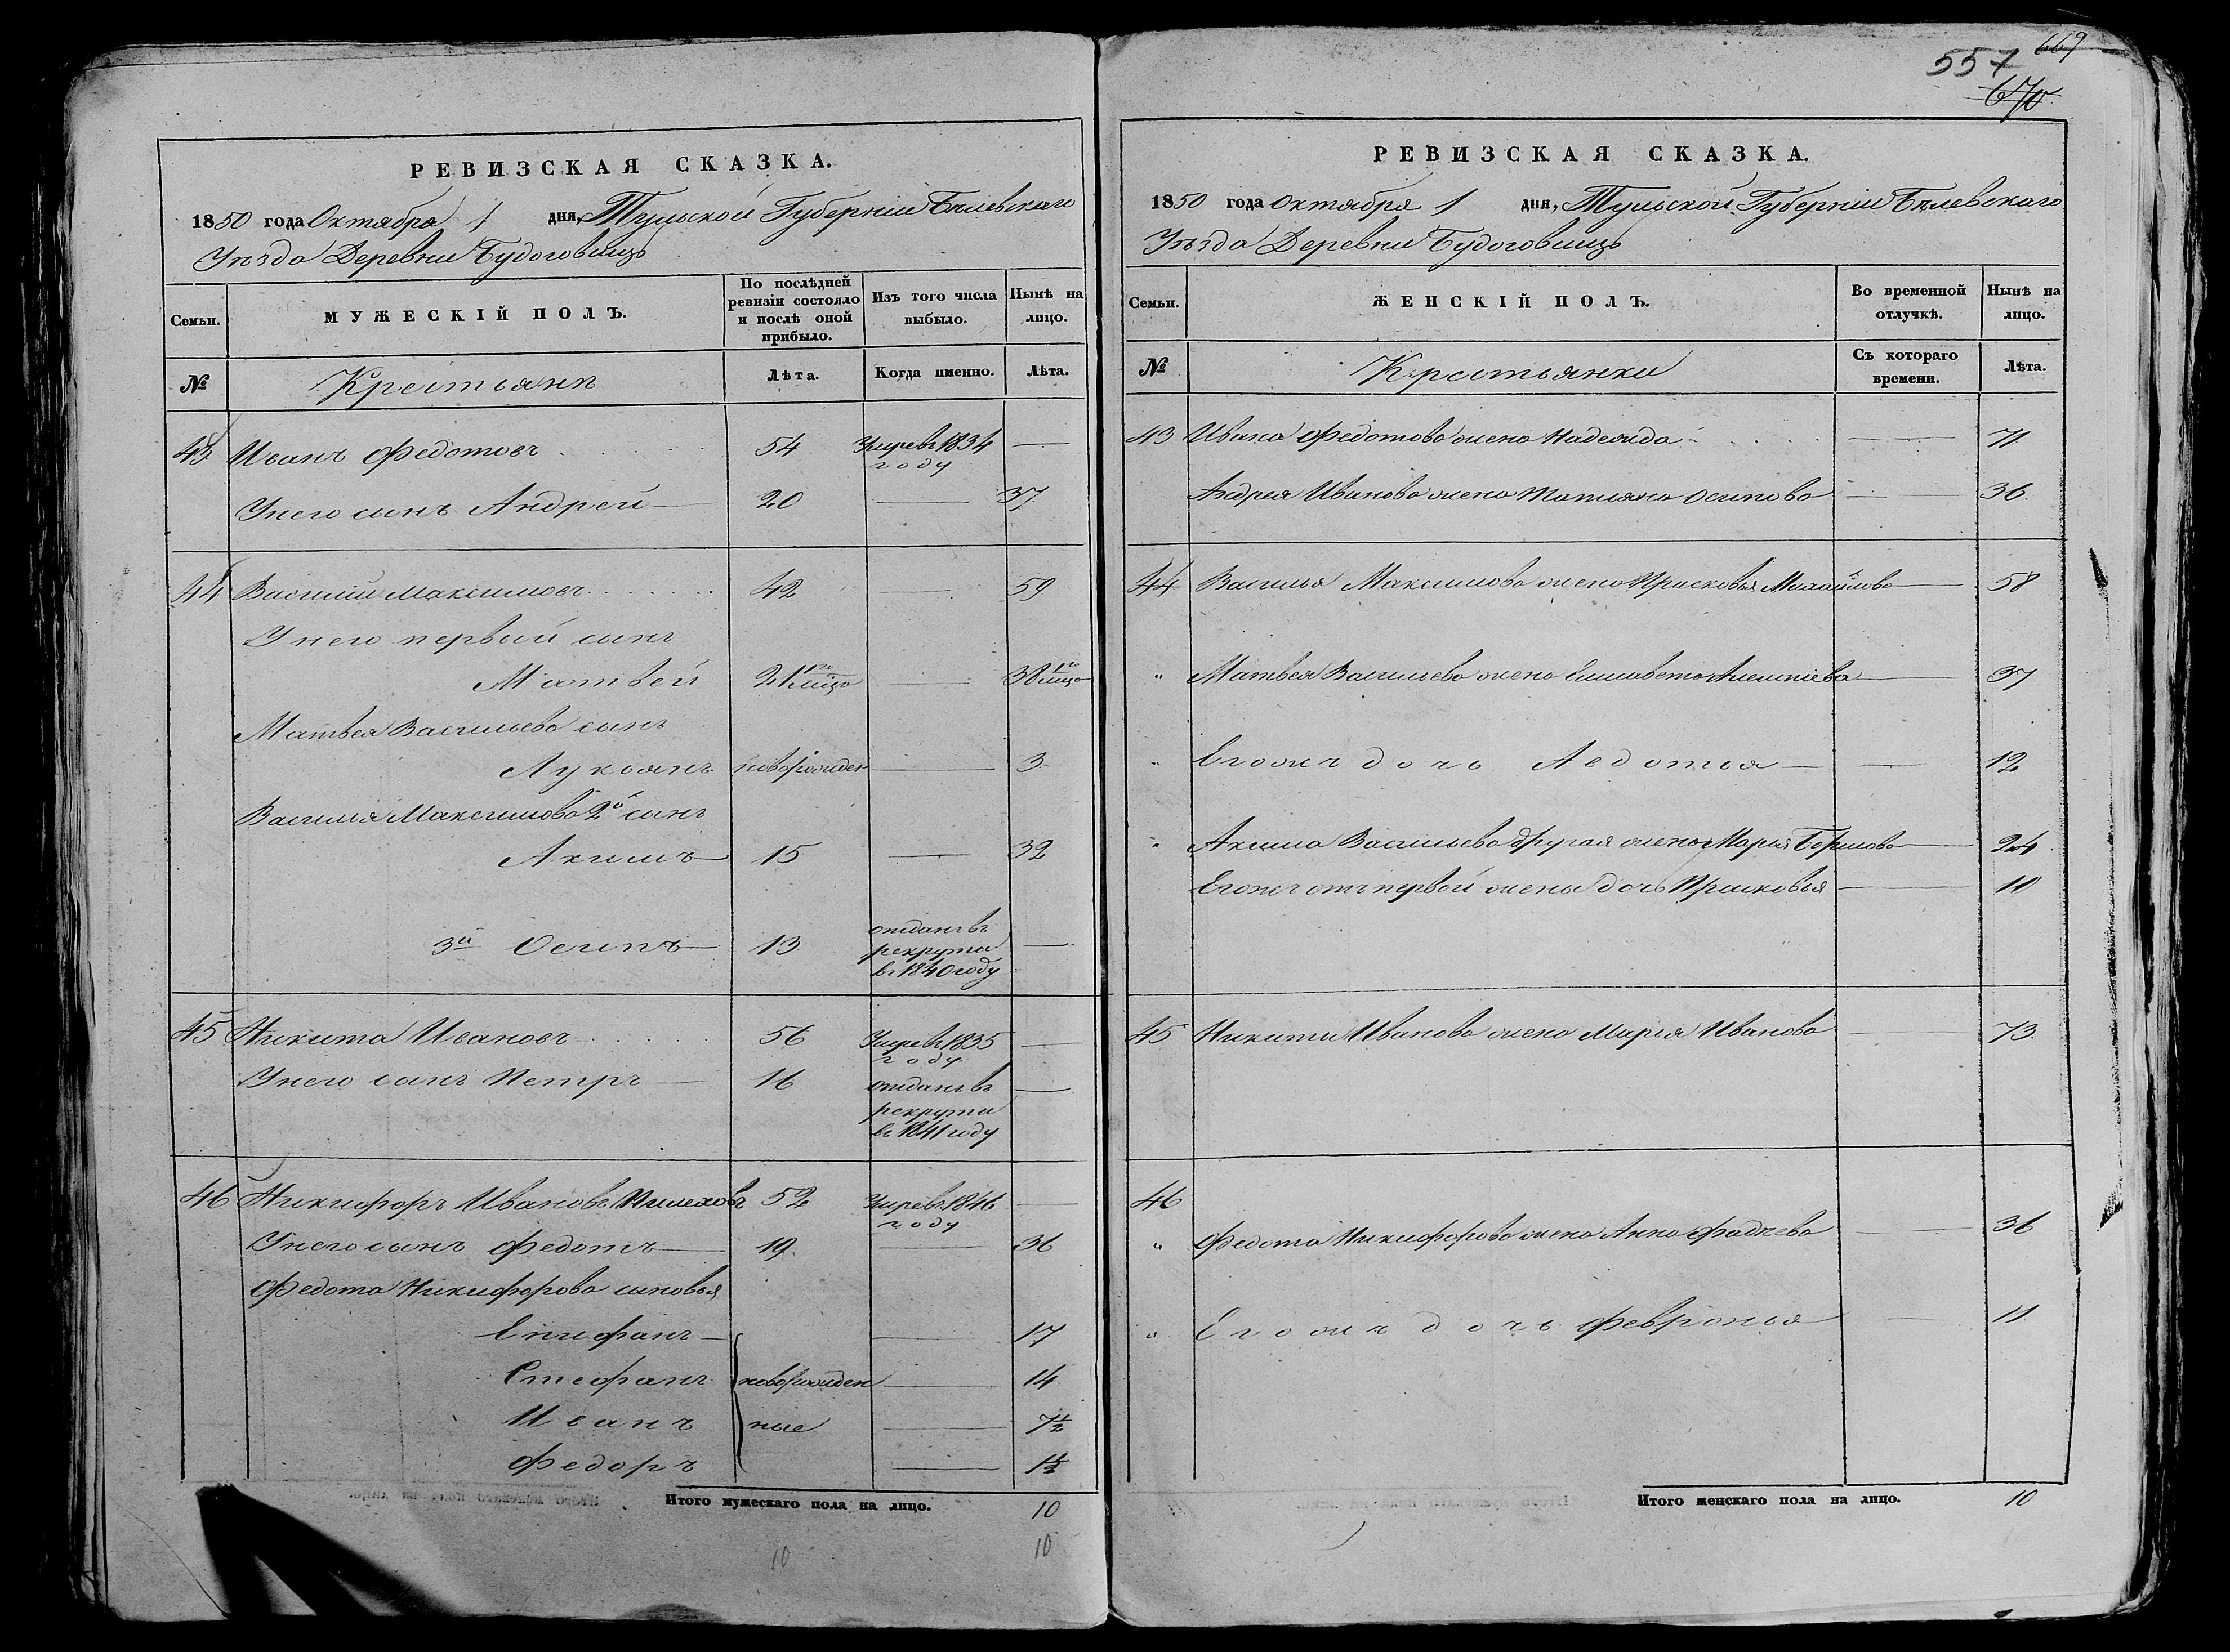 669
557
670
РЕВИЗСКАЯ СКАЗКА.
1850 года Октября 1 дня, Тульской Губерніи Бѣлевскаго
Уѣзда Деревни Будоговищъ
Семьи.
МУЖЕСКІЙ ПОЛЪ.
По послѣдней
ревизіи состояло
и послѣ оной
прибыло.
Изъ того числа
выбыло.
Нынѣ на
лицо.
№
Крестьянъ
Лѣта.
Когда именно.
Лѣта.
43 Иванъ Федотовъ 54 Умре въ 1834 —
году
У него сынъ Андрей — 20 — 37
44 Василій Максимовъ 42 — 59
У него первый сынъ
Матвей 21 1го лица — 38 1го лица
Матвея Васильева сынъ
Лукьянъ новорожден — 3
Василия Максимова 2й сынъ
Акимъ — 15 — 32
3й Осипъ — 13 отданъ въ —
рекруты
въ 1840 году
45 Никита Ивановъ 56 Умре въ 1835 —
году
У него сынъ Петръ — 16 отданъ въ —
рекруты
въ 1841 году
46 Никифоръ Ивановъ 52 Умре въ 1846 —
году
У него сынъ Федотъ — 19 — 36
Федота Никифорова сыновья
Епифанъ — — 17
Стефанъ новорожден — 14
Иванъ ные — 7½
Федоръ — 1½
Итого мужескаго пола на лицо. 10
10 10
РЕВИЗСКАЯ СКАЗКА.
1850 года Октября 1 дня, Тульской Губерніи Бѣлевскаго
Уѣзда Деревни Будоговищъ
Семьи.
ЖЕНСКІЙ ПОЛЪ.
Во временной
отлучкѣ.
Нынѣ на
лицо.
№
Крестьянки
Съ котораго
времени.
Лѣта.
43 Ивана Федотова жена Надежда — 71
Андрея Иванова жена Татьяна Осипова — 36
44 Василья Максимова жена Прасковья Михайлова — 58
" Матвея Васильева жена Елисавета Алексіева — 37
" Егожъ дочь Авдотья — — 12
" Акима Васильева другая жена Марья — 24
Егожъ отъ первой жены дочь Прасковья — 11
45 Никиты Иванова жена Марья Иванова — 73
46
" Федота Никифорова жена Анна Фадѣева — 36
" Егожъ дочь Февронья — 11
Итого женскаго пола на лицо. 10